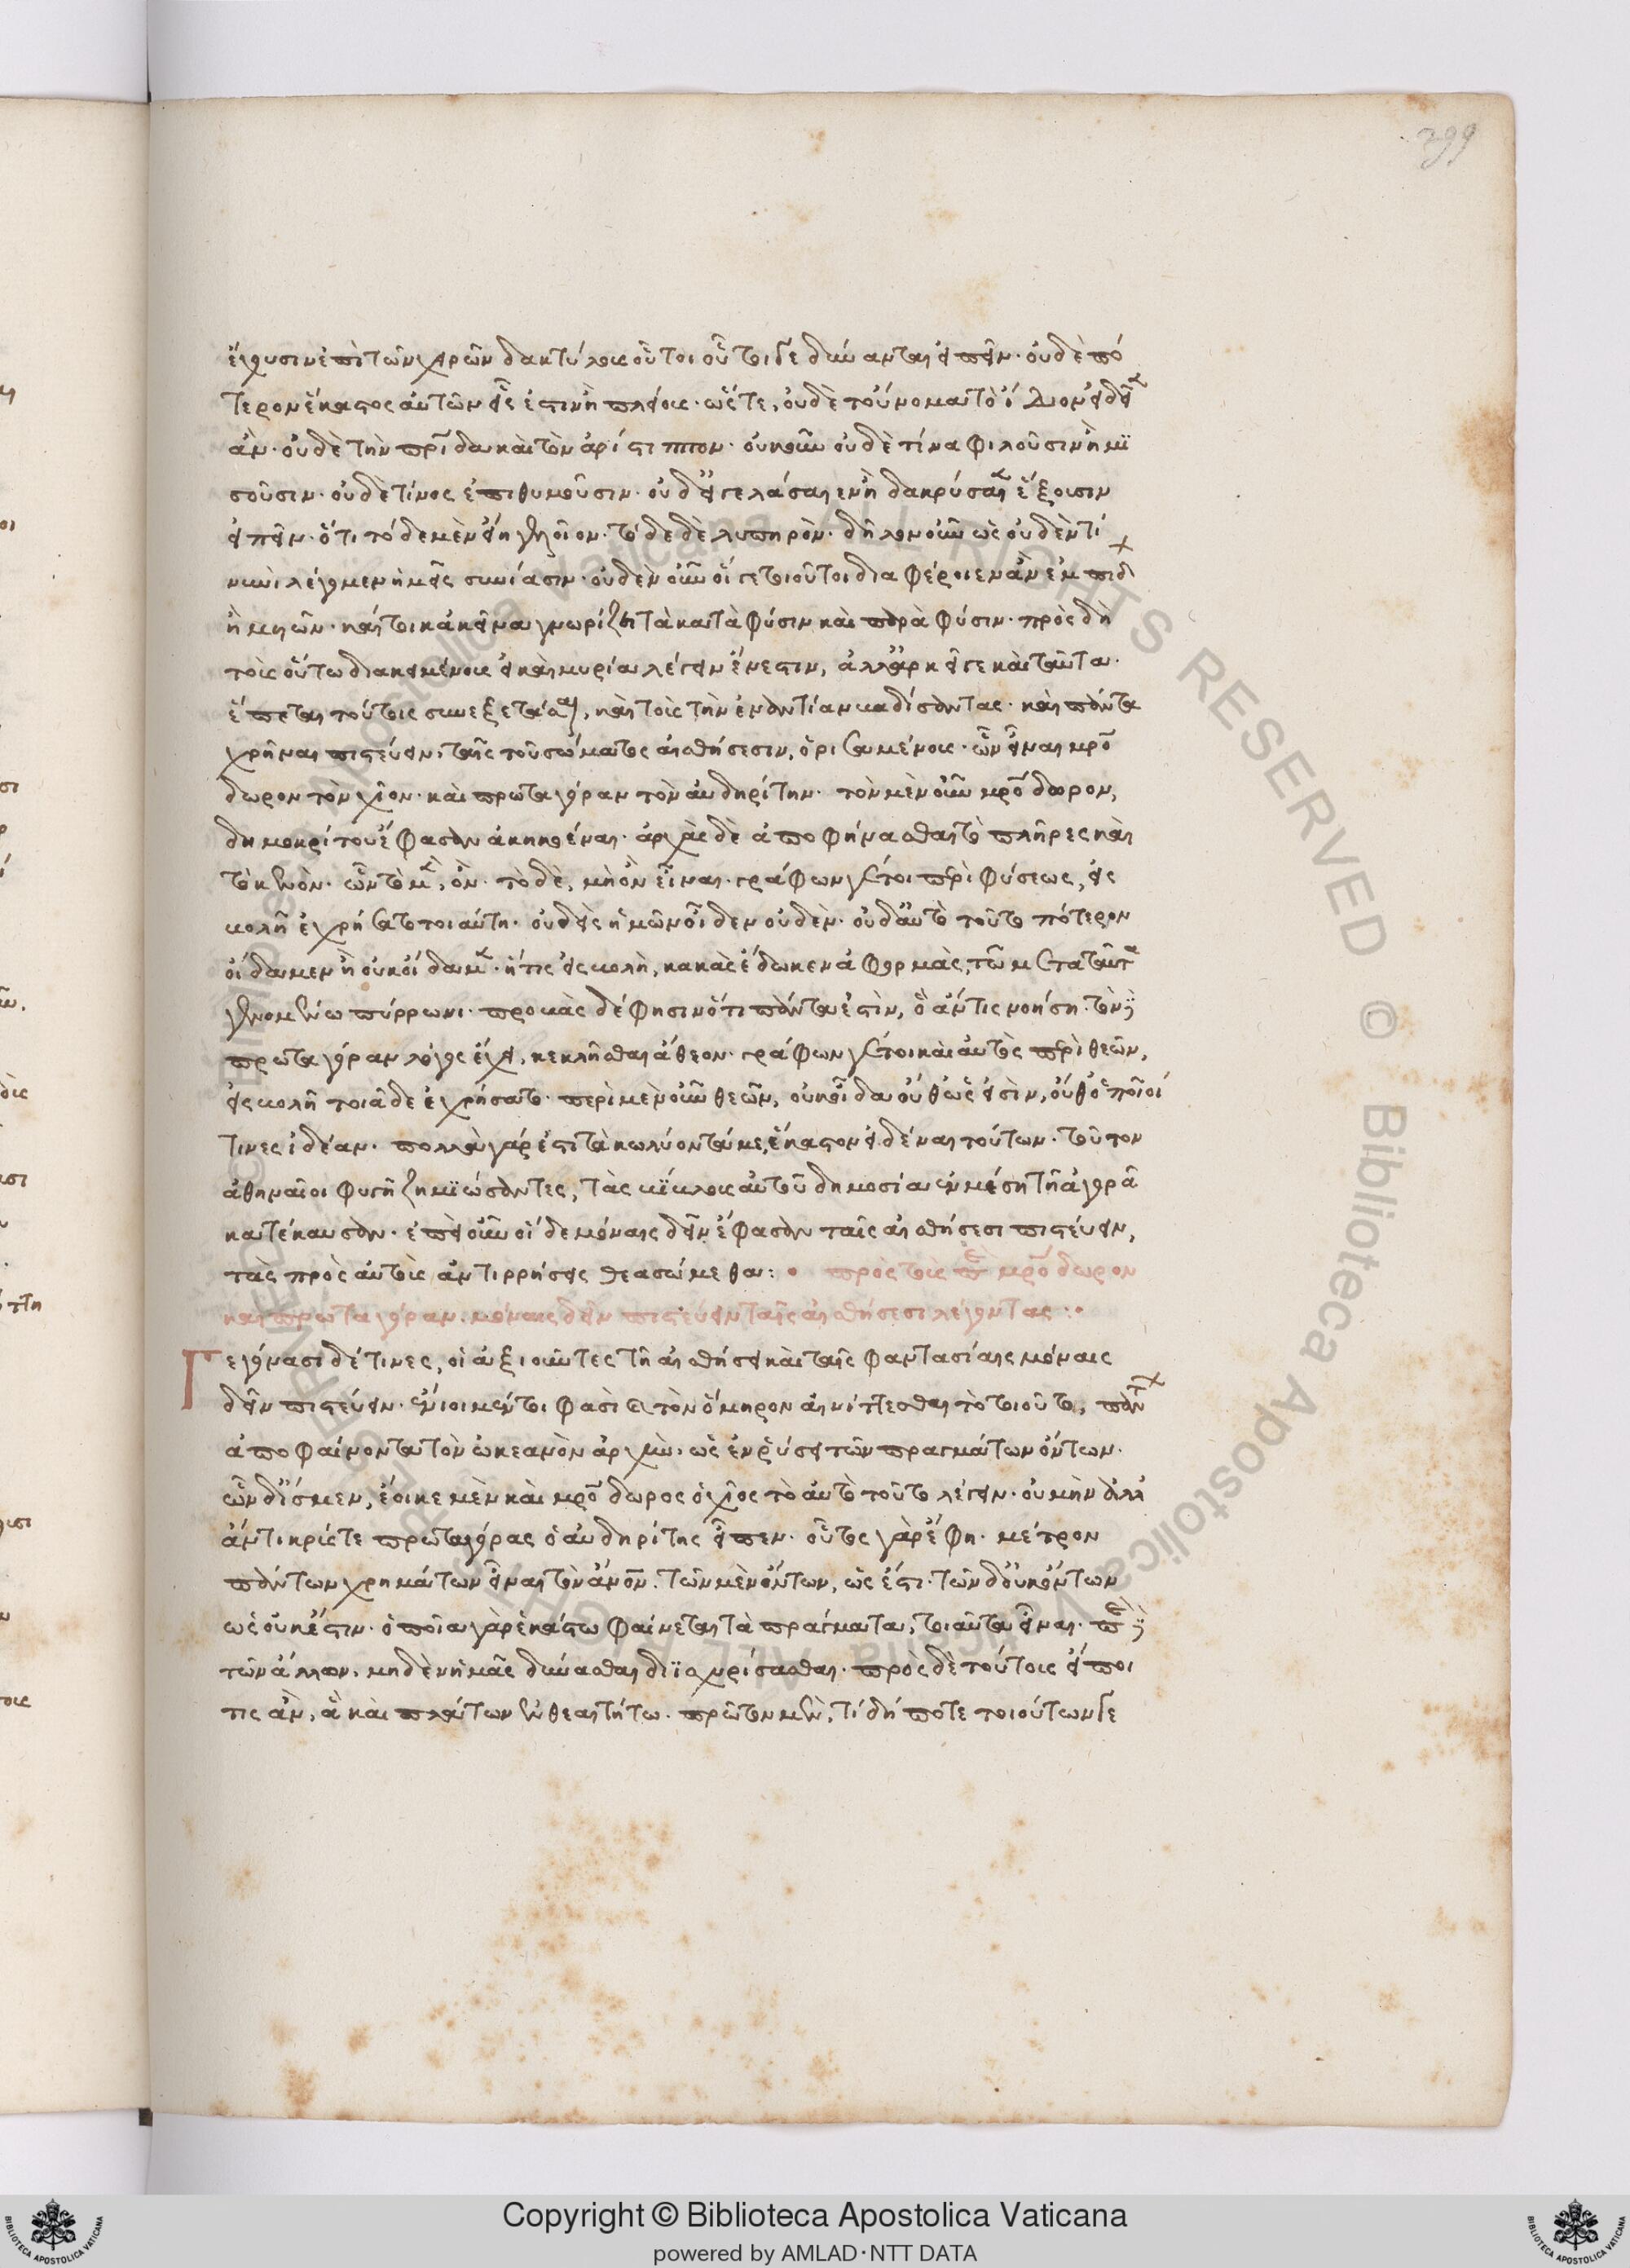 399
ἔχουσιν ἐπὶ τῶν χειρῶν δακτύλους οὗτοι οὗτοί γε δύνανται εἰπεῖν· οὐδὲ πό
τερον ἕκαστος αὐτῶν εἷς ἐστιν ἢ πλείους· ὥστε, οὐδὲ τοὔνομα τὸ ἴδιον εἰδεῖεν
ἄν· οὐδὲ τὴν πατρίδα καὶ τὸν ἀρίστιππον· οὐκοῦν οὐδὲ τίνα φιλοῦσιν ἢ μι
σοῦσιν· οὐδὲ τίνος ἐπιθυμοῦσιν· οὐδ' εἰ γελάσαιεν ἢ δακρύσαιεν ἕξουσιν
εἰπεῖν· ὅτι τόδε μὲν εἴη γελοῖον· τόδε δὲ λυπηρὸν· δῆλον οὖν ὡς οὐδὲν τί
νυνὶ λέγομεν ἡμεῖς συνίασιν· οὐδὲν οὖν οἵ γε τοιοῦτοι διαφέροιεν ἂν ἐμπίδ
ἢ μυιῶν· καίτοι κἀκεῖνα γνωρίζει τὰ κατὰ φύσιν καὶ παρὰ φύσιν· πρὸς δὴ
τοὺς οὕτω διακειμένους εἰ καὶ μυρία λέγειν ἔνεστιν, ἀλλ' ἀρκεῖ γε καὶ ταῦτα·
ἕπεται τούτοις συνεξετάσαι, καὶ τοὺς τὴν ἐναντίαν βαδίσαντας· καὶ πάντα
χρῆναι πιστεύειν, ταῖς τοῦ σώματος αἰσθήσεσιν, ὁρισαμένους· ὧν εἶναι μητρό
δωρον τὸν χῖον· καὶ πρωταγόραν τὸν αὐδηρίτην· τὸν μὲν οὖν μητρόδωρον,
δημοκρίτου ἔφασαν ἀκηκοέναι· ἀρχὰς δὲ ἀποφήνασθαι τὸ πλῆρες καὶ
τὸ κενὸν· ὧν τὸ μὲν, ὂν· τὸ δὲ, μὴ ὂν εἶναι· γράφων γέ τοι περὶ φύσεως, εἰς
βολῇ ἐχρήσατο τοιαύτῃ· οὐδεὶς ἡμῶν οἶδεν οὐδὲν· οὐδ' αὐτὸ τοῦτο πότερον
οἴδαμεν ἢ οὐκ οἴδαμεν· ἥτις εἰσβολὴ, κακὰς ἔδωκεν ἀφορμὰς, τῷ μετὰ ταῦτα
γενομένῳ πύρρωνι· προβὰς δέ φησιν ὅτι πάντα ἐστὶν, ὃ ἄν τις νοήσῃ· τὸν δὲ
πρωταγόραν λόγος ἔχει, κεκλῆσθαι ἄθεον· γράφων γέ τοι καὶ αὐτὸς περὶ θεῶν,
εἰσβολῇ τοιᾷδε ἐχρήσατο· περὶ μὲν οὖν θεῶν, οὐκ οἶδα οὔθ' ὡς εἰσὶν, οὔθ' ὁποῖοί
τινες ἰδέαν· πολλὰ γάρ ἐστι τὰ κωλύοντά με, ἕκαστον εἰδέναι τούτων· τοῦτον
ἀθηναῖοι φυγῇ ζημιώσαντες, τὰς βίβλους αὐτοῦ δημοσίᾳ ἐν μέσῃ τῇ ἀγορᾷ
κατέκαυσαν· ἐπεὶ οὖν οἵδε μόναις δεῖν ἔφασαν ταῖς αἰσθήσεσι πιστεύειν,
τὰς πρὸς αὐτοὺς ἀντιρρήσεις θεασώμεθα: • πρὸς τοὺς περὶ μητρόδωρον
καὶ πρωταγόραν· μόναις δεῖν πιστεύειν ταῖς αἰσθήσεσι λέγοντας: •
Γεγόνασι δέ τινες, οἱ ἀξιοῦντες τῇ αἰσθήσει καὶ ταῖς φαντασίαις μόναις
δεῖν πιστεύειν· ἔνιοι μέντοι φασὶ καὶ τὸν ὅμηρον αἰνίττεσθαι τὸ τοιοῦτο, πάντων
ἀποφαίνοντα τὸν ὠκεανὸν ἀρχὴν· ὡς ἐν ῥύσει τῶν πραγμάτων ὄντων·
ὧν δ' ἴσμεν, ἔοικε μὲν καὶ μητρόδωρος ὁ χῖος τὸ αὐτὸ τοῦτο λέγειν· οὐ μὴν ἀλλ'
ἄντικρύς γε πρωταγόρας ὁ αὐδηρίτης εἶπεν· οὗτος γὰρ ἔφη· μέτρον
πάντων χρημάτων εἶναι τὸν ἄνθρωπον· τῶν μὲν ὄντων, ὡς ἔστι· τῶν δ' οὐκ ὄντων
ὡς οὐκ ἔστιν· ὁποῖα γὰρ ἑκάστῳ φαίνεται τὰ πράγματα, τοιαῦτα εἶναι· περὶ δὲ
τῶν ἄλλων, μηδὲν ἡμᾶς δύνασθαι διϊσχυρίσασθαι· πρὸς δὲ τούτοις εἴποι
τις ἂν, ἃ καὶ πλάτων ἐν θεαιτήτῳ· πρῶτον μὲν, τί δή ποτε τοιούτων γε